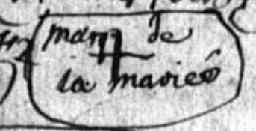 marq de
la marieé